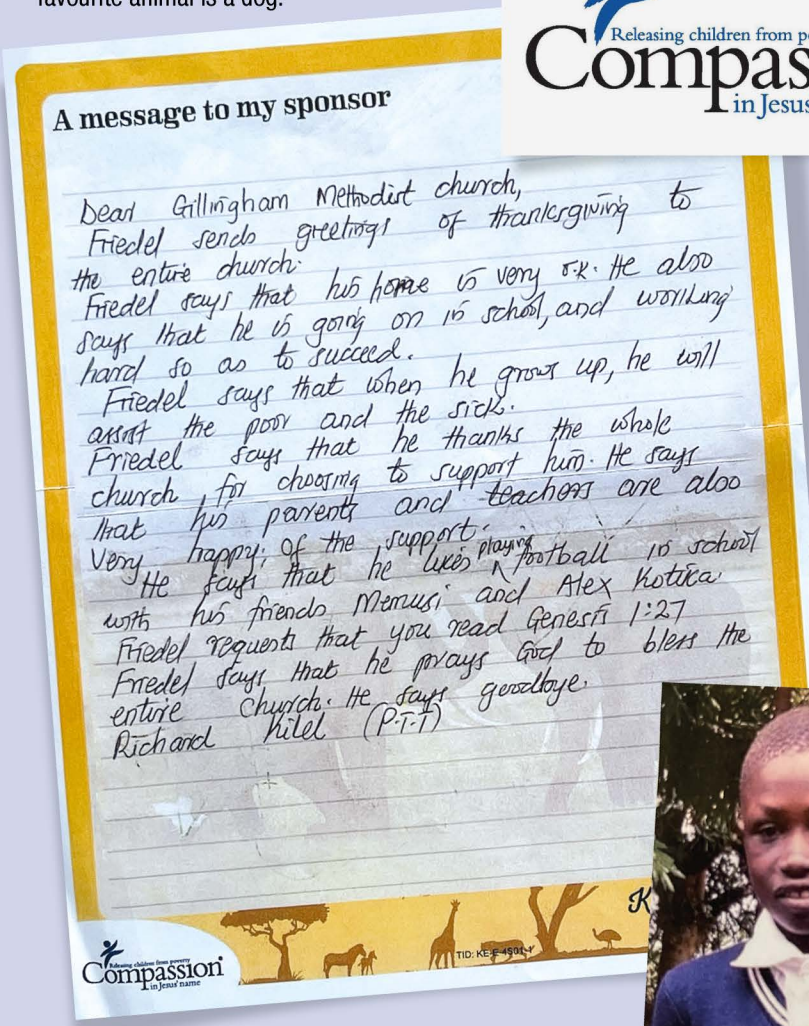 favourite animal is a dog.
Releasing children from po
Compas
in Jesus
A message to my sponsor
Dear Gillingham Methodist church,
Friedel sends greetings of thanksgiving to
the entire church.
Friedel says that his home is very o.k. He also
says that he is going on in school, and working
hard so as to succeed.
Friedel says that when he grows up, he will
assist the poor and the sick.
Friedel says that he thanks the whole
church, for choosing to support him. He says
that his parents and teachers are also
very happy; of the support.
He says that he likes playing football in school
with his friends Memusi and Alex Kotika.
Friedel requests that you read Genesis 1:27
Friedel says that he prays God to bless the
entire church. He says goodbye.
Richard Kilel (P.T.T)
K
TID: KE-E-4S01-1
Releasing children from poverty
Compassion
in Jesus' name